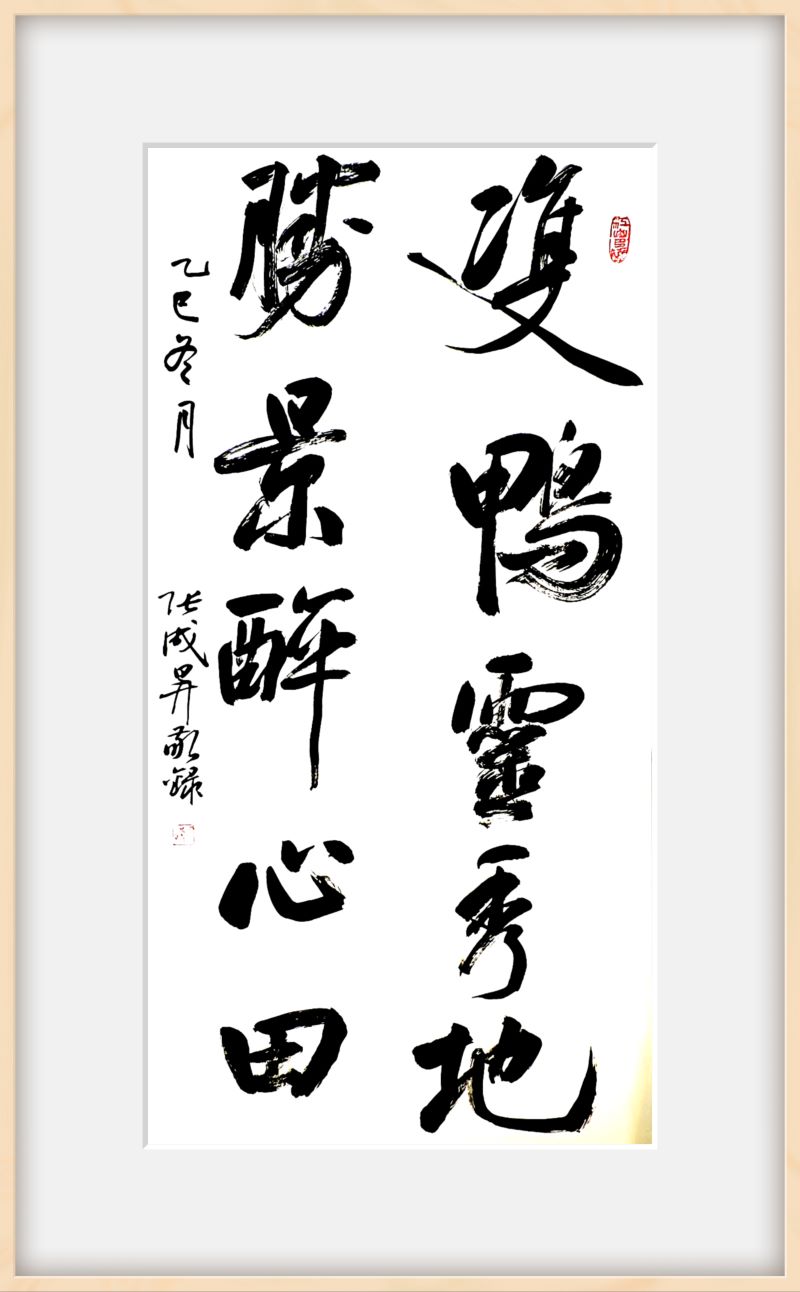 雙鴨靈秀地
勝景醉心田
乙巳冬月
张成昇敬録